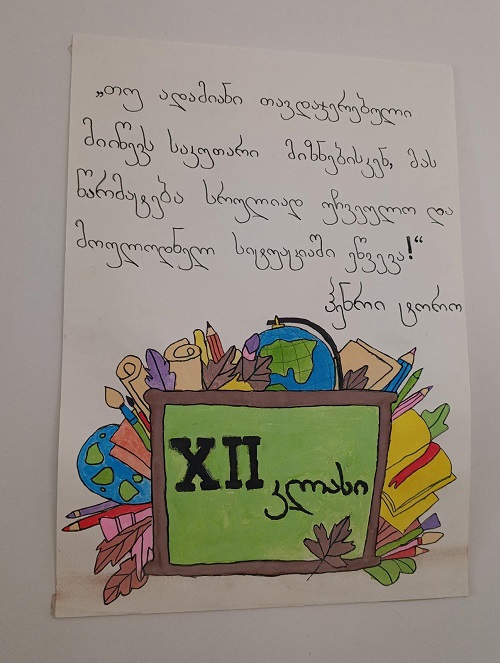 „თუ ადამიანი თავდაჯერებული
მიიწევს საკუთარი მიზნებისკენ, მას
წარმატება სრულიად უჩვეულო და
მოულოდნელ სიტუაციაში ეწვევა!“
ჰენრი ცტორო
XII
კლასი